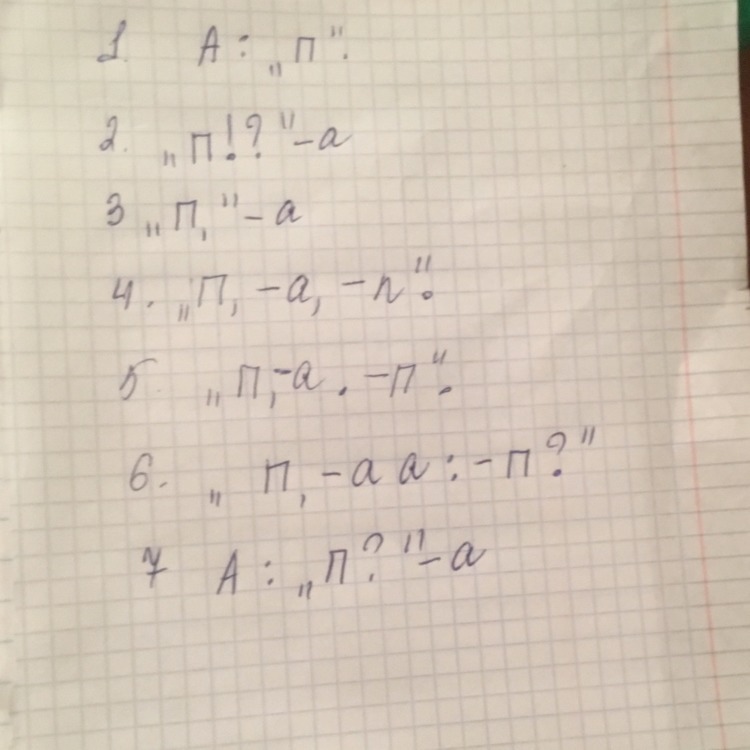 1. А: „п".
2. „П!?"–а
3 „П,"–а
4. „П, –а, –п".
5. „П,–а. –п".
6. „П, –а а: –п?"
7 А: „П?"–а